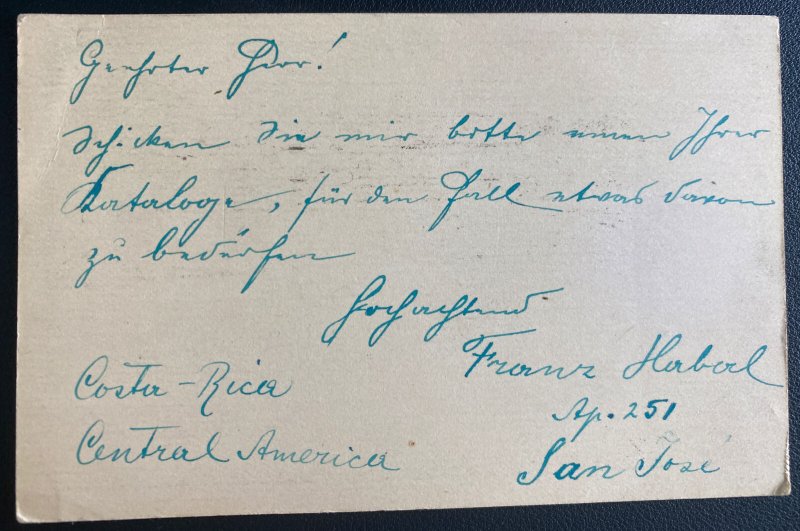 Geehrter Herr!
Schicken Sie mir bitte einen Ihrer
Kataloge, für den Fall etwas davon
zu bedürfen
Hochachtend
Franz Habal
Costa-Rica
Ap. 251
Central America
San José